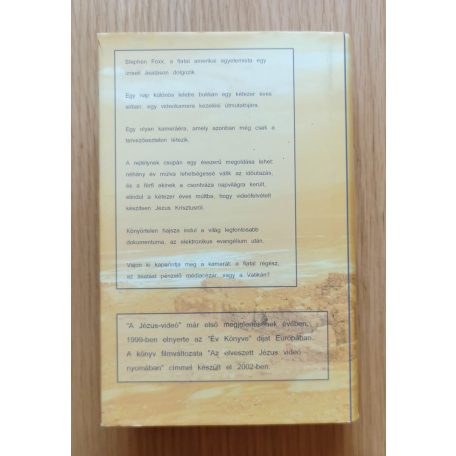 Stephen Foxx, a fiatal amerikai egyetemista egy
izraeli ásatáson dolgozik.
Egy nap különös leletre bukkan egy kétezer éves
sírban: egy videokamera kezelési útmutatójára.
Egy olyan kameráéra, amely azonban még csak a
tervezőasztalon létezik.
A rejtélynek csupán egy ésszerű megoldása lehet:
néhány év múlva lehetségessé válik az időutazás,
és a férfi akinek a csontváza napvilágra került,
elindul a kétezer éves múltba, hogy videofelvételt
készítsen Jézus Krisztusról.
Könyörtelen hajsza indul a világ legfontosabb
dokumentuma, az elektronikus evangélium után.
Vajon ki kaparintja meg a kamerát: a fiatal régész,
az ásatást pénzelő médiacézár, vagy a Vatikán?
"A Jézus-videó" már első megjelenésének évében,
1999-ben elnyerte az "Év Könyve" díjat Európában.
A könyv filmváltozata "Az elveszett Jézus videó
nyomában" címmel készült el 2002-ben.